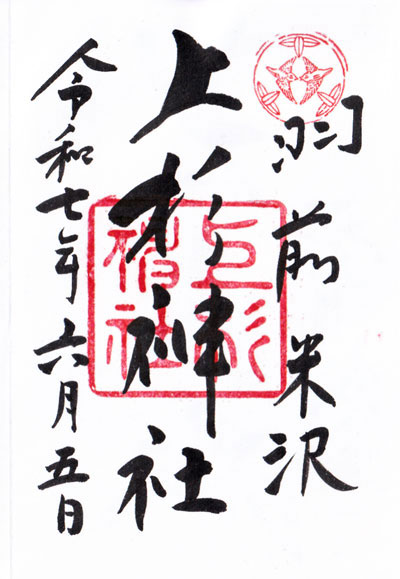 羽前米沢
上杉神社
上杉神社
令和七年六月五日